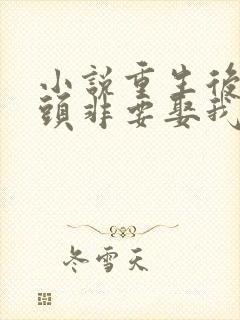 小說重生後
頭非要娶我
冬雪天